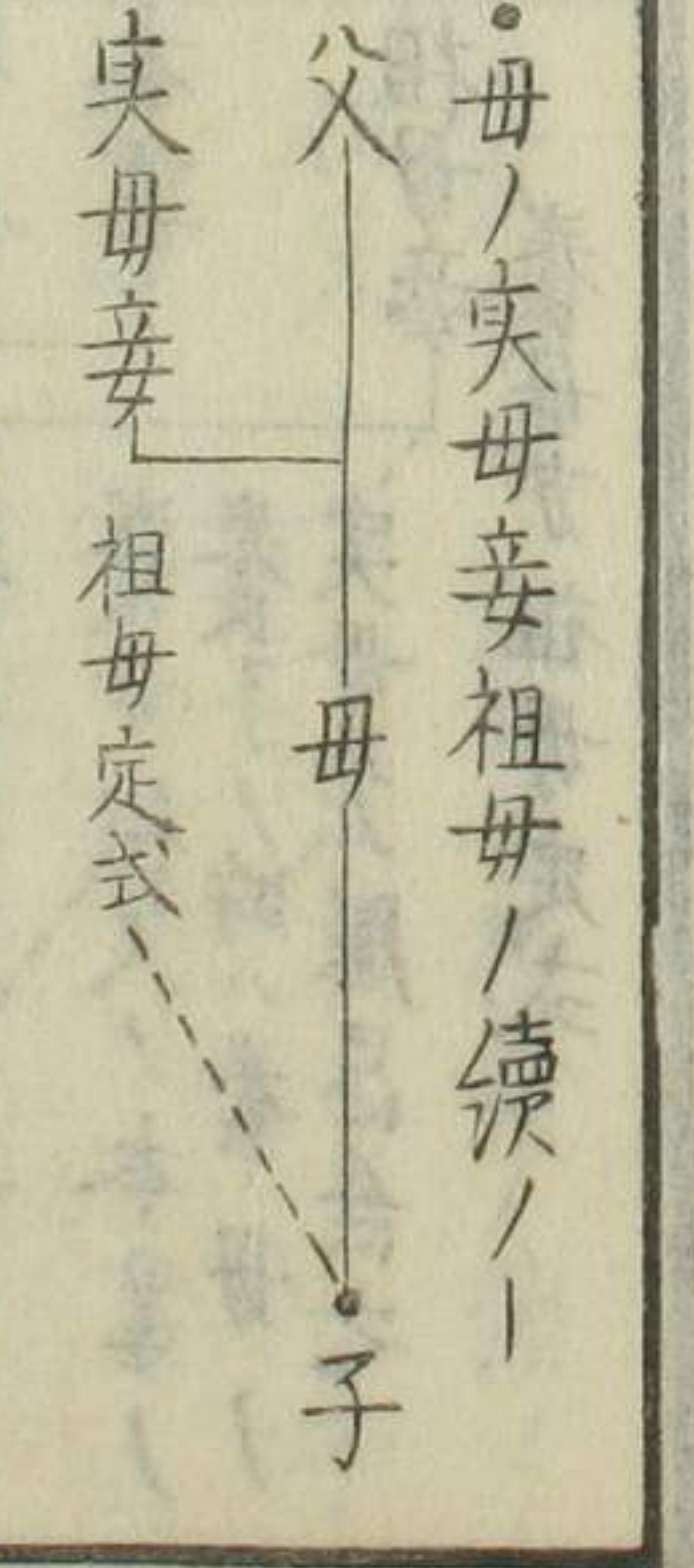 ・母ノ実母妾祖母ノ續ノ一
父 母 子
実母妾 祖母定式